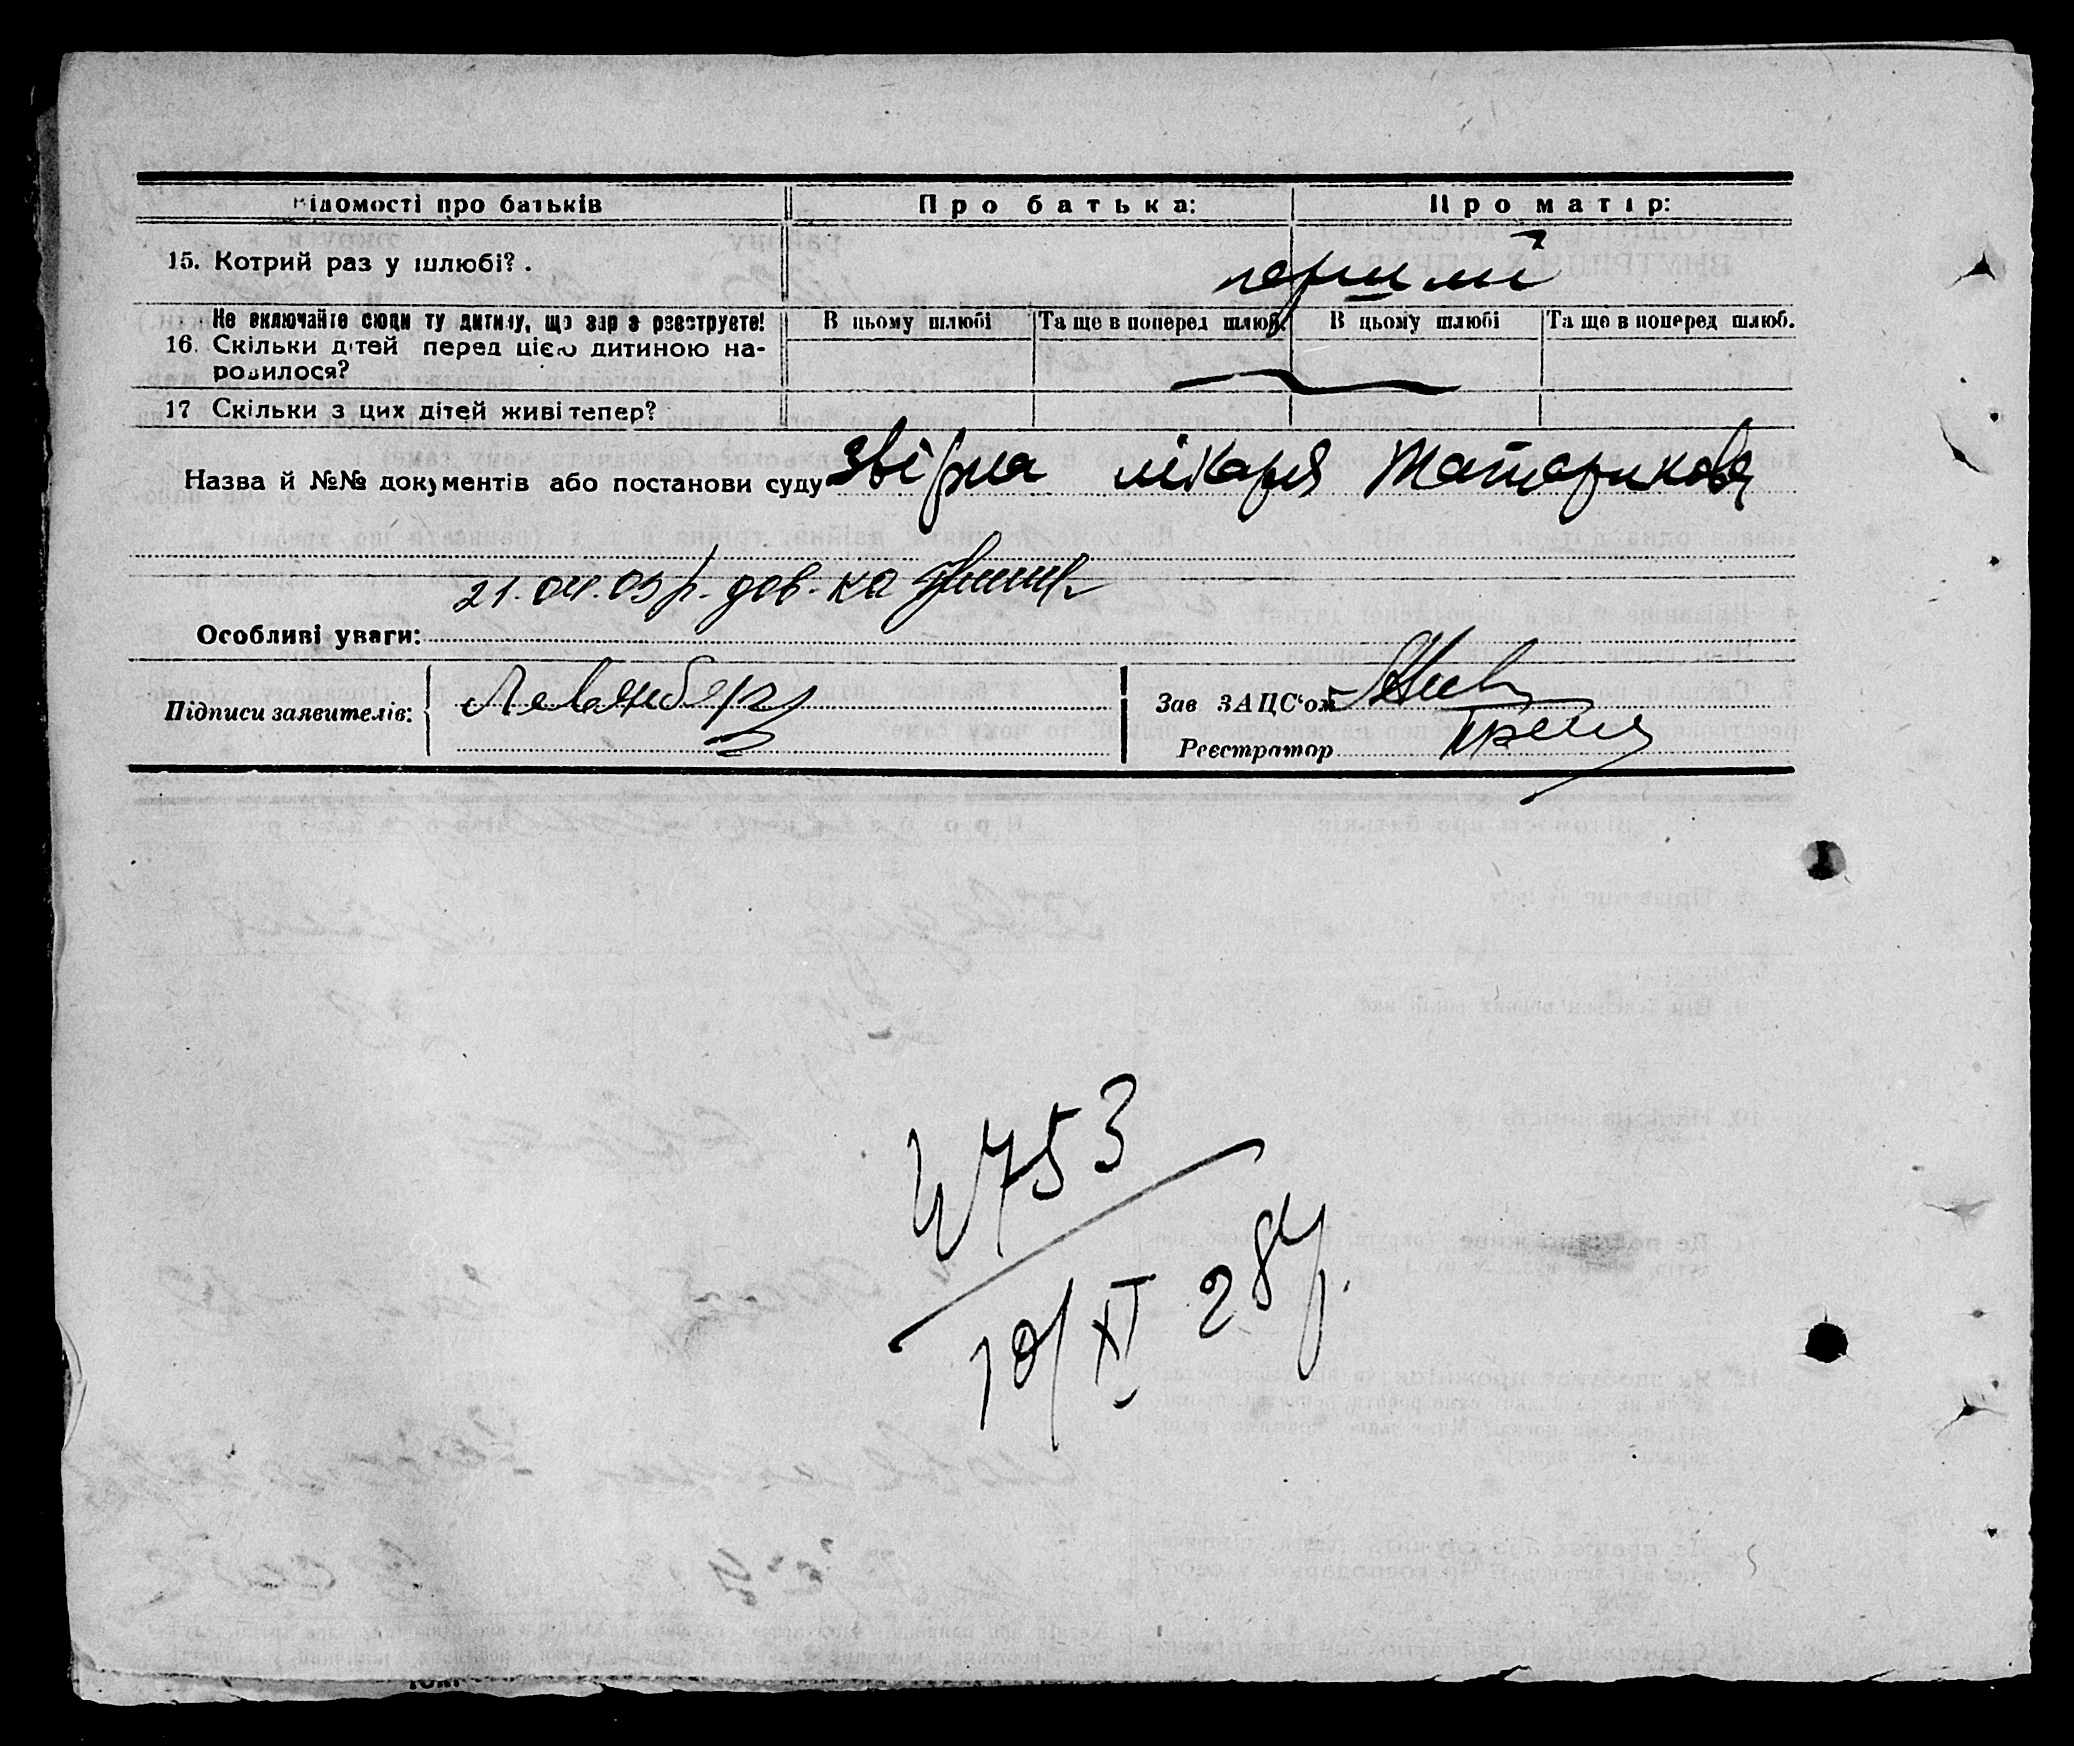 Відомості про батьків Про батька: Про матір:
15. Котрий раз у шлюбі? перший
Не включайте сюди ту дитину, що зараз реєструєте! В цьому шлюбі Та ще в поперед шлюб. В цьому шлюбі Та ще в поперед шлюб.
16. Скільки дітей перед цією дитиною на-
родилося? —
17 Скільки з цих дітей живі тепер?
Назва й №№ документів або постанови суду звірка лікаря
21.04.05 р. дов-ка
Особливі уваги:
Підписи заявителів: Зав ЗАЦС'ом
Реєстратор
4753
10/XI 28 р.